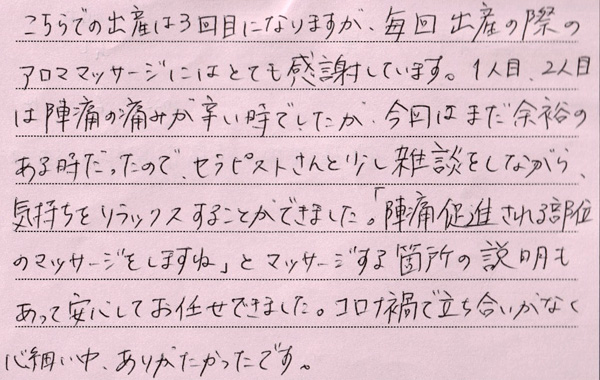 こちらでの出産は3回目になりますが、毎回出産の際の
アロママッサージにはとても感謝しています。1人目、2人目
は陣痛の痛みが辛い時でしたが、今回はまだ余裕の
ある時だったので、セラピストさんと少し雑談をしながら、
気持ちをリラックスすることができました。「陣痛促進される部位
のマッサージをしますね」とマッサージする箇所の説明も
あって安心してお任せできました。コロナ禍で立ち合いがなく
心細い中、ありがたかったです。